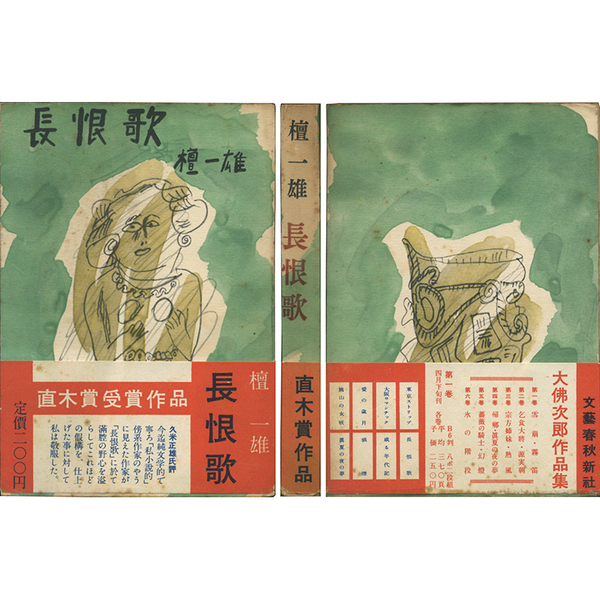 長恨歌
檀一雄
檀一雄
長恨歌
直木賞受賞作品
久米正雄氏評
今迄純文学的で
寧ろ「私小説的」
傍系作家のやう
に見えた作家が
「長恨歌」に於て
らしてこれほど
満腔の野心を溢
の仮構を、仕上
げた事に対して
私は敬服した。
定價二〇〇円
檀一雄
長恨歌
直木賞作品
文藝春秋新社
大佛次郎作品集
第一巻 雪崩・霧笛
第二巻 乞食大将・源実朝
第三巻 宗方姉妹・熱風
第四巻 帰郷・真夏の夜の夢
第五巻 薔薇の騎士・幻燈
第六巻 氷の階段
B6判 八ポ二段組
平均三七〇頁
各巻
子価二五〇円
第一巻
四月下旬刊
東京ストリップ
長恨歌
大阪ロマンチック
愛の歳月